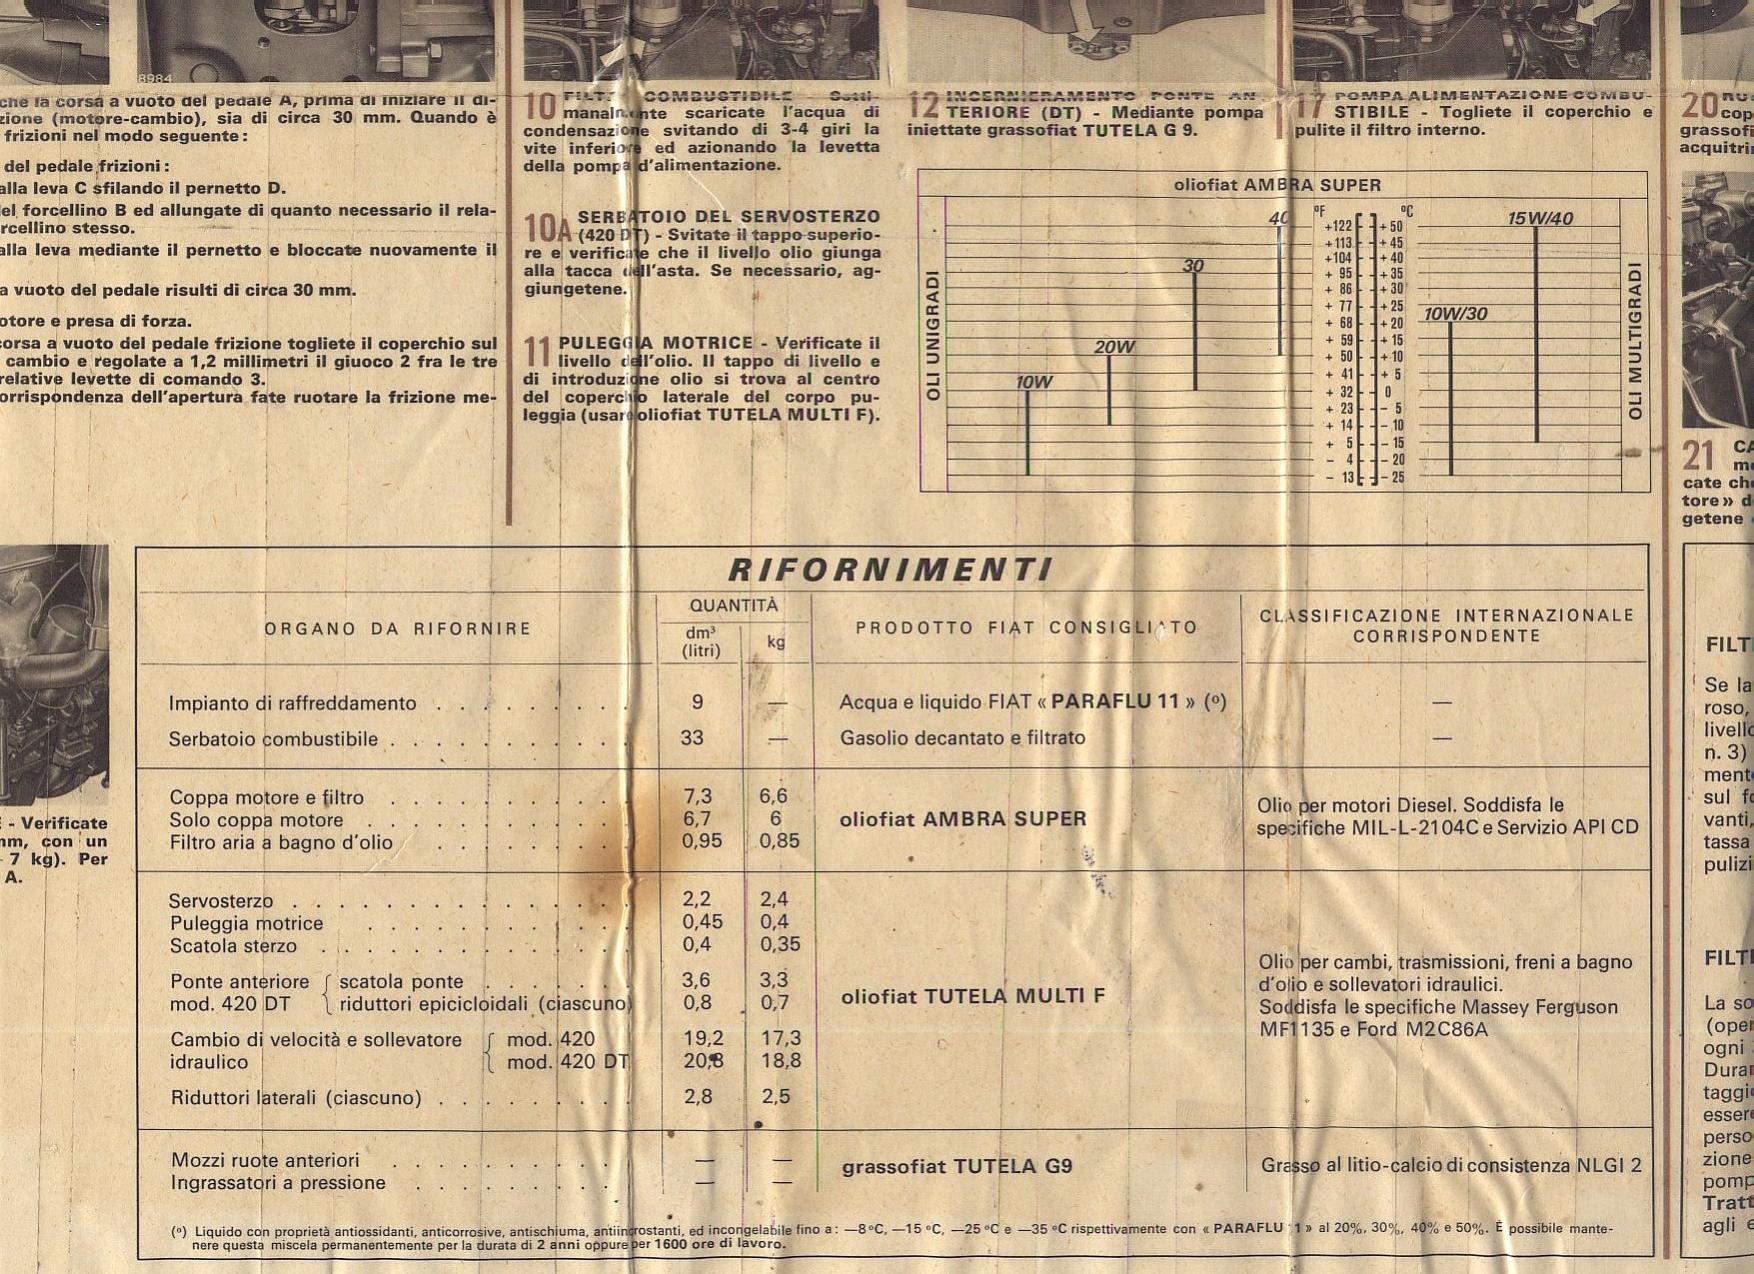 8984
che la corsa a vuoto del pedale A, prima di iniziare il di-
zione (motore-cambio), sia di circa 30 mm. Quando è
frizioni nel modo seguente:
del pedale frizioni:
alla leva C sfilando il pernetto D.
el forcellino B ed allungate di quanto necessario il rela-
rcellino stesso.
alla leva mediante il pernetto e bloccate nuovamente il
a vuoto del pedale risulti di circa 30 mm.
otore e presa di forza.
corsa a vuoto del pedale frizione togliete il coperchio sul
cambio e regolate a 1,2 millimetri il giuoco 2 fra le tre
relative levette di comando 3.
orrispondenza dell'apertura fate ruotare la frizione me-
E - Verificate
mm, con un
7 kg). Per
A.
10 FILTRO COMBUSTIBILE - Setti-
manalmente scaricate l'acqua di
condensazione svitando di 3-4 giri la
vite inferiore ed azionando la levetta
della pompa d'alimentazione.
10A SERBATOIO DEL SERVOSTERZO
(420 DT) - Svitate il tappo superio-
re e verificate che il livello olio giunga
alla tacca dell'asta. Se necessario, ag-
giungetene.
11 PULEGGIA MOTRICE - Verificate il
livello dell'olio. Il tappo di livello e
di introduzione olio si trova al centro
del coperchio laterale del corpo pu-
leggia (usare oliofiat TUTELA MULTI F).
12 INCERNIERAMENTO PONTE AN-
TERIORE (DT) - Mediante pompa
iniettate grassofiat TUTELA G 9.
17 POMPA ALIMENTAZIONE COMBU-
STIBILE - Togliete il coperchio e
pulite il filtro interno.
oliofiat AMBRA SUPER
OLI UNIGRADI
10W
20W
30
40
°F °C
+122 +50
+113 +45
+104 +40
+ 95 +35
+ 86 +30
+ 77 +25
+ 68 +20
+ 59 +15
+ 50 +10
+ 41 + 5
+ 32 0
+ 23 - 5
+ 14 - 10
+ 5 - 15
- 4 - 20
- 13 - 25
10W/30
15W/40
OLI MULTIGRADI
20
cop
grassofi
acquitri
21 CA
mo
cate che
tore» d
getene
RIFORNIMENTI
ORGANO DA RIFORNIRE
QUANTITÀ
dm³
(litri)
kg
PRODOTTO FIAT CONSIGLIATO
CLASSIFICAZIONE INTERNAZIONALE
CORRISPONDENTE
Impianto di raffreddamento . . . . . . . . . 9 — Acqua e liquido FIAT « PARAFLU 11 » (º) —
Serbatoio combustibile . . . . . . . . . . 33 — Gasolio decantato e filtrato —
Coppa motore e filtro . . . . . . . . . . 7,3 6,6
Solo coppa motore . . . . . . . . . . . 6,7 6
Filtro aria a bagno d'olio . . . . . . . . 0,95 0,85
oliofiat AMBRA SUPER
Olio per motori Diesel. Soddisfa le
specifiche MIL-L-2104C e Servizio API CD
Servosterzo . . . . . . . . . . . . . . 2,2 2,4
Puleggia motrice . . . . . . . . . . . 0,45 0,4
Scatola sterzo . . . . . . . . . . . . . 0,4 0,35
Ponte anteriore { scatola ponte . . . . . . 3,6 3,3
mod. 420 DT { riduttori epicicloidali (ciascuno) 0,8 0,7
Cambio di velocità e sollevatore { mod. 420 19,2 17,3
idraulico { mod. 420 DT 20,8 18,8
Riduttori laterali (ciascuno) . . . . . . . . . 2,8 2,5
oliofiat TUTELA MULTI F
Olio per cambi, trasmissioni, freni a bagno
d'olio e sollevatori idraulici.
Soddisfa le specifiche Massey Ferguson
MF1135 e Ford M2C86A
Mozzi ruote anteriori . . . . . . . . . . — —
Ingrassatori a pressione . . . . . . . . . — —
grassofiat TUTELA G9
Grasso al litio-calcio di consistenza NLGI 2
(º) Liquido con proprietà antiossidanti, anticorrosive, antischiuma, antiincrostanti, ed incongelabile fino a: —8 ºC, —15 ºC, —25 ºC e —35 ºC rispettivamente con « PARAFLU 11 » al 20%, 30%, 40% e 50%. È possibile mante-
nere questa miscela permanentemente per la durata di 2 anni oppure per 1600 ore di lavoro.
FILT
Se la
roso,
livello
n. 3)
mente
sul fo
vanti,
tassa
pulizi
FILT
La so
(oper
ogni
Duran
taggi
essere
perso
zione
pomp
Tratt
agli e